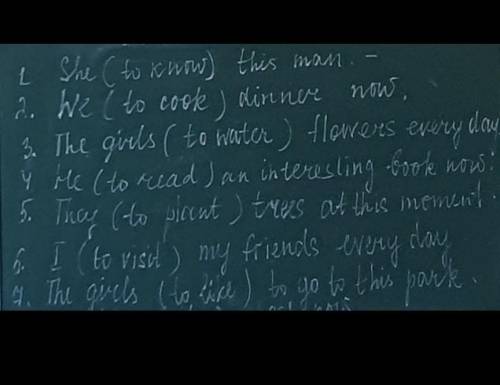 1. She (to know) this man. -
2. We (to cook) dinner now.
3. The girls (to water) flowers every day
4 He (to read) an interesting book now.
5. They (to plant) trees at this moment
6. I (to visit) my friends every day
7. The girls (to like) to go to this park.